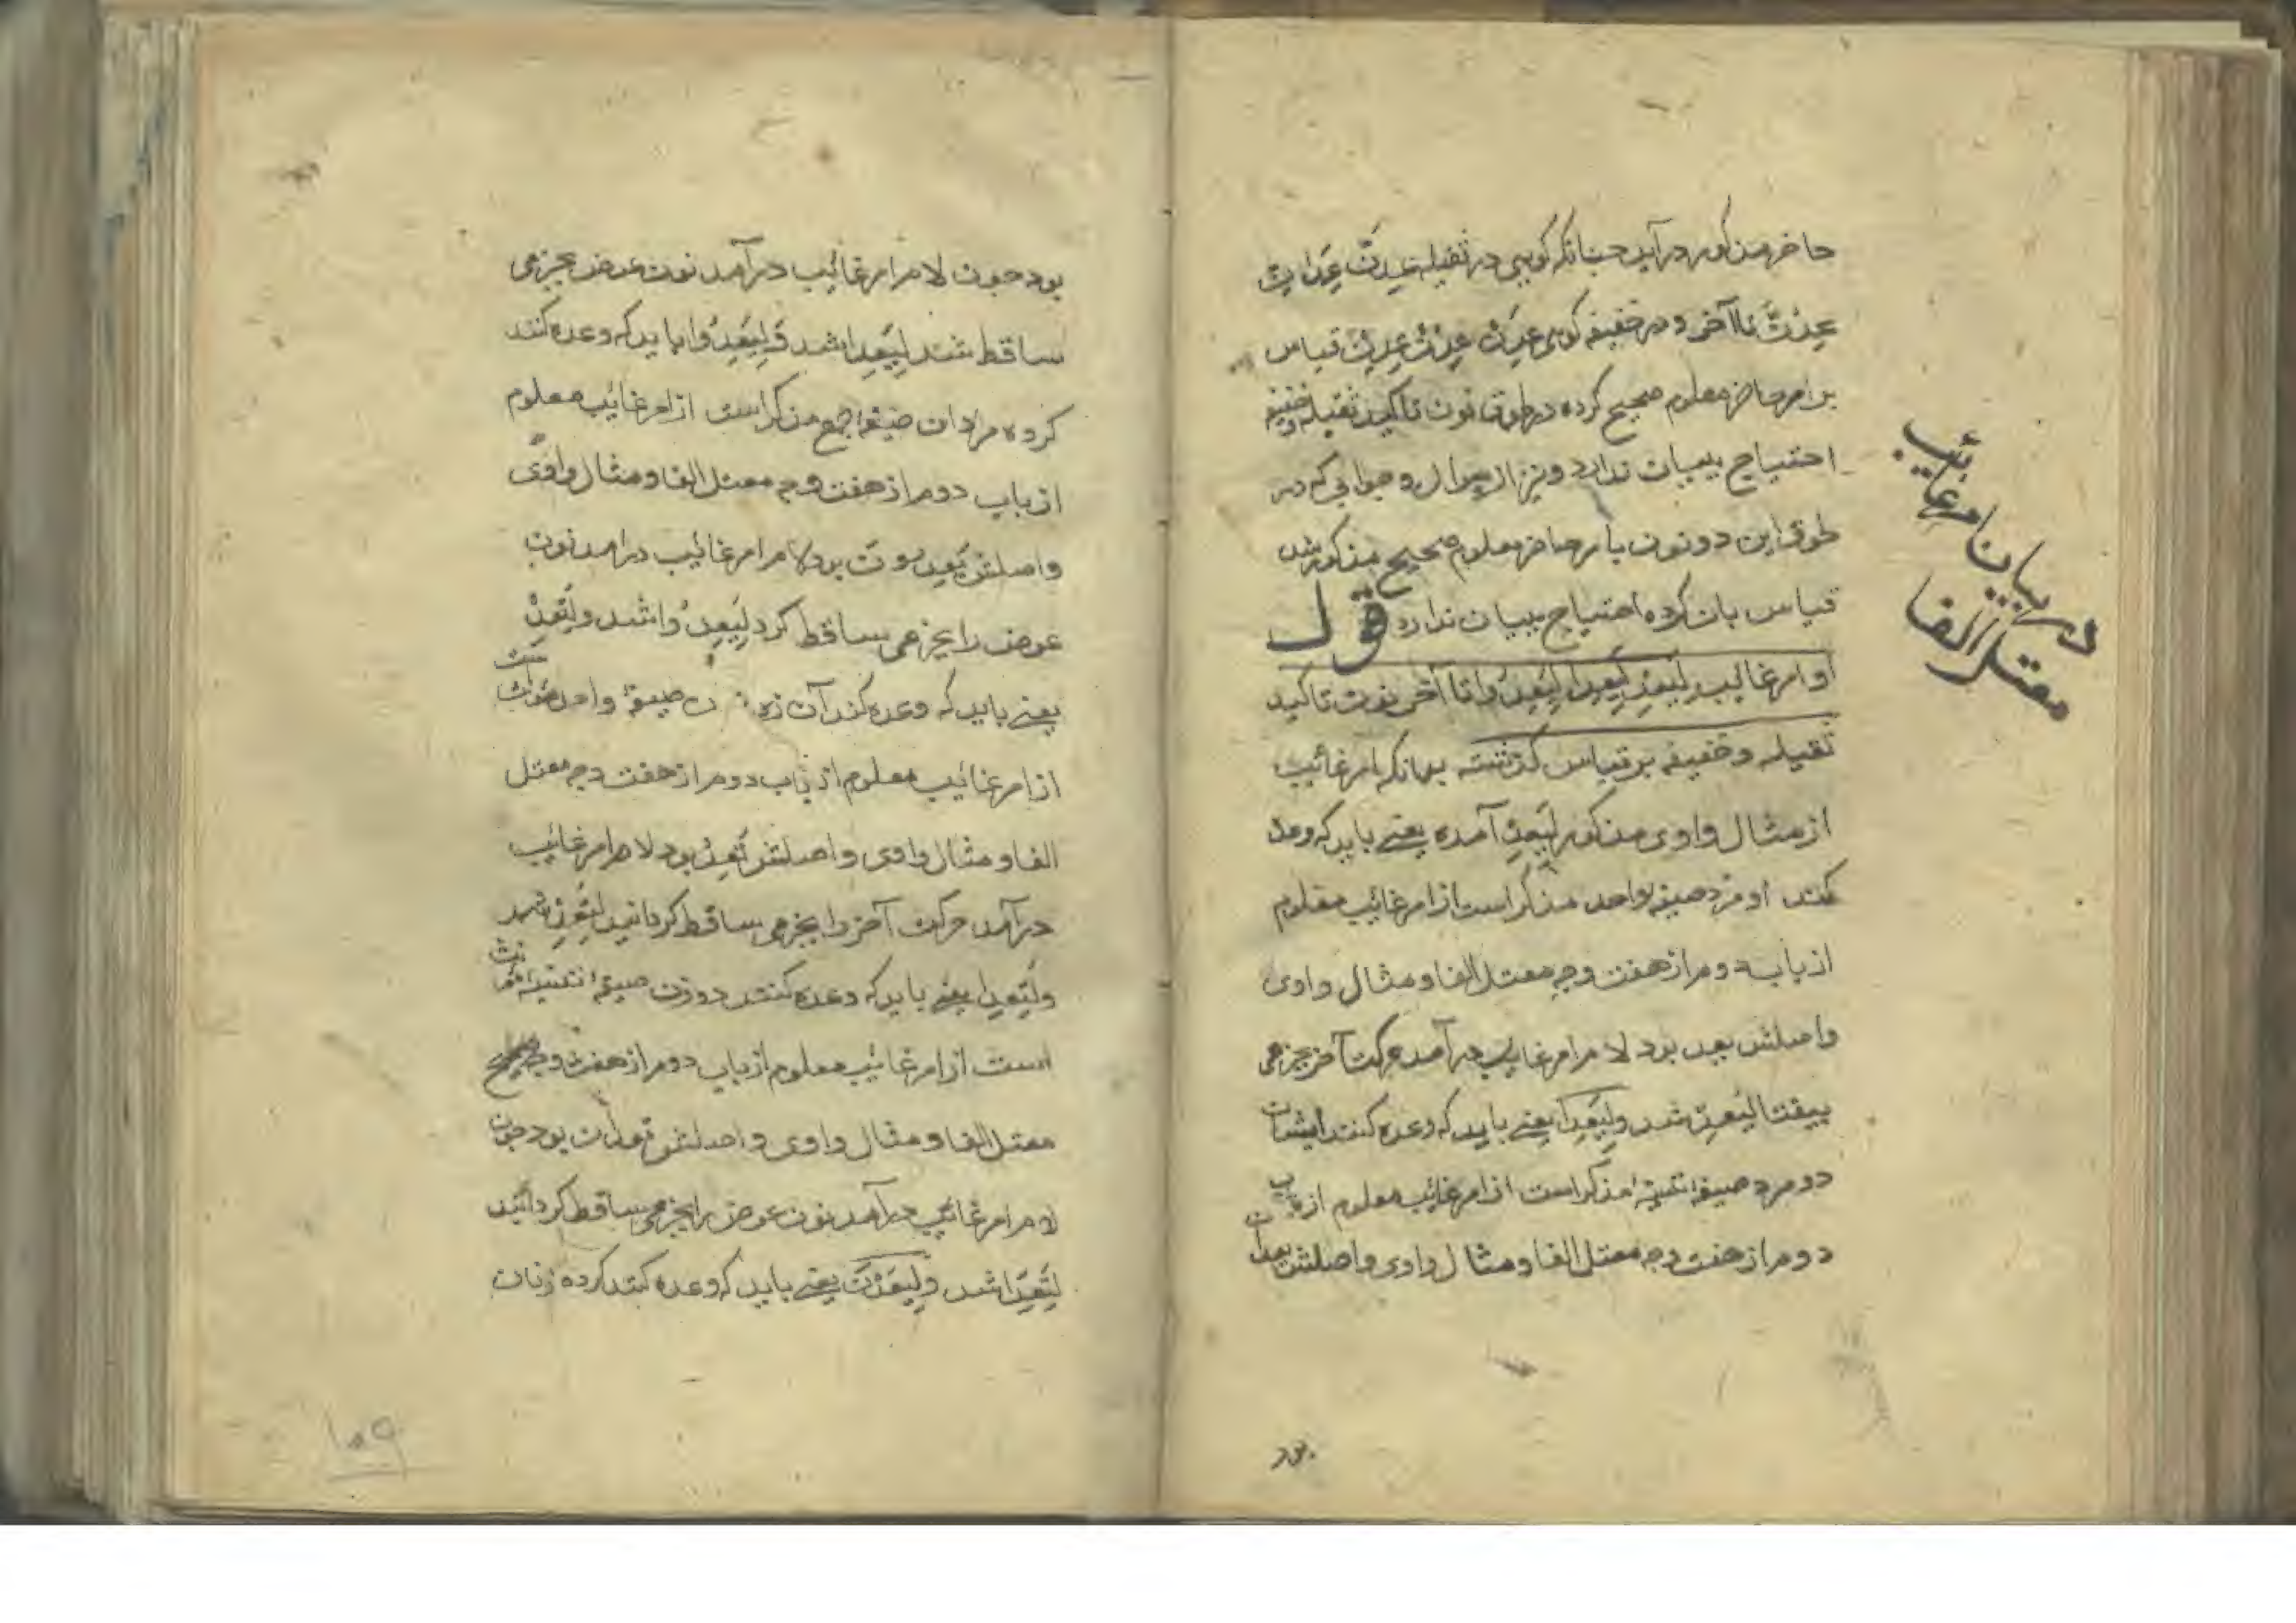 حاضر مذکور در آید چنانکه گویی در ثقیله عِدَنَّ عِدَانِّ
عِدُنَّ تا آخر و در خفیفه گویی عِدَنْ عِدُنْ عِدِنْ قیاس
بر امر حاضر معلوم صحیح کرده در لحوق نون تاکید ثقیله و خفیفه
احتیاج ببیان ندارد و نیز آن سوال و جوابی که در
لحوق این دو نون بامر حاضر معلوم صحیح مذکور شد
قیاس بان کرده احتیاج ببیان ندارد قوله
او امر غایب لِیَعِدْ لِیَعِدَا لِیَعِدُوا تا آخر نون تاکید
ثقیله و خفیفه بر قیاس گذشته بدانکه امر غائب
از مثال واوی مذکور لِیَعِدْ آمده یعنی باید که وعده
کند او مرد صیغه واحد مذکر است از امر غائب معلوم
از باب دوم از هفت وجه معتل الفا و مثال واوی
واصلش یعد بود لام امر غایب در آمد حرکت آخر بجزمی
بیفتاد لِیَعِدْ شد ولِیَعِدَا یعنی باید که وعده کنند ایشان
دو مرد صیغهٔ تثنیهٔ مذکر است از امر غائب معلوم از باب
دوم از هفت وجه معتل الفا و مثال واوی واصلش یعدان
در بیان امر غائب
معتل الفا
بود
بود چون لام امر غائب در آمد نون عوض بجزمی
ساقط شد لِیَعِدَا شد ولِیَعِدُوا باید که وعده کنند
کروه مردان صیغهٔ جمع مذکر است از امر غائب معلوم
از باب دوم از هفت وجه معتل الفا و مثال واوی
واصلش یَعِدُونَ بود لام امر غائب در امد نون
عوض را بجزمی ساقط کرد لِیَعِدُوا شد ولِتَعِدْ
یعنی باید که وعده کند آن زن صیغهٔ واحد مؤنث است
از امر غائب معلوم از باب دوم از هفت وجه معتل
الفا و مثال واوی واصلش تَعِدُ بود لام امر غائب
در آمد حرکت آخر را بجزمی ساقط کردانید لِتَعِدْ شد
ولِتَعِدَا یعنی باید که وعده کنند دو زن صیغهٔ تثنیهٔ مؤنث
است از امر غائب معلوم از باب دوم از هفت وجه
معتل الفا و مثال واوی واصلش تعدان بود چون
لام امر غائب در آمد نون عوض را بجزمی ساقط کردانید
لِتَعِدَا شد ولِیَعِدْنَ یعنی باید که وعده کنند کروه زنان
۱۰۹